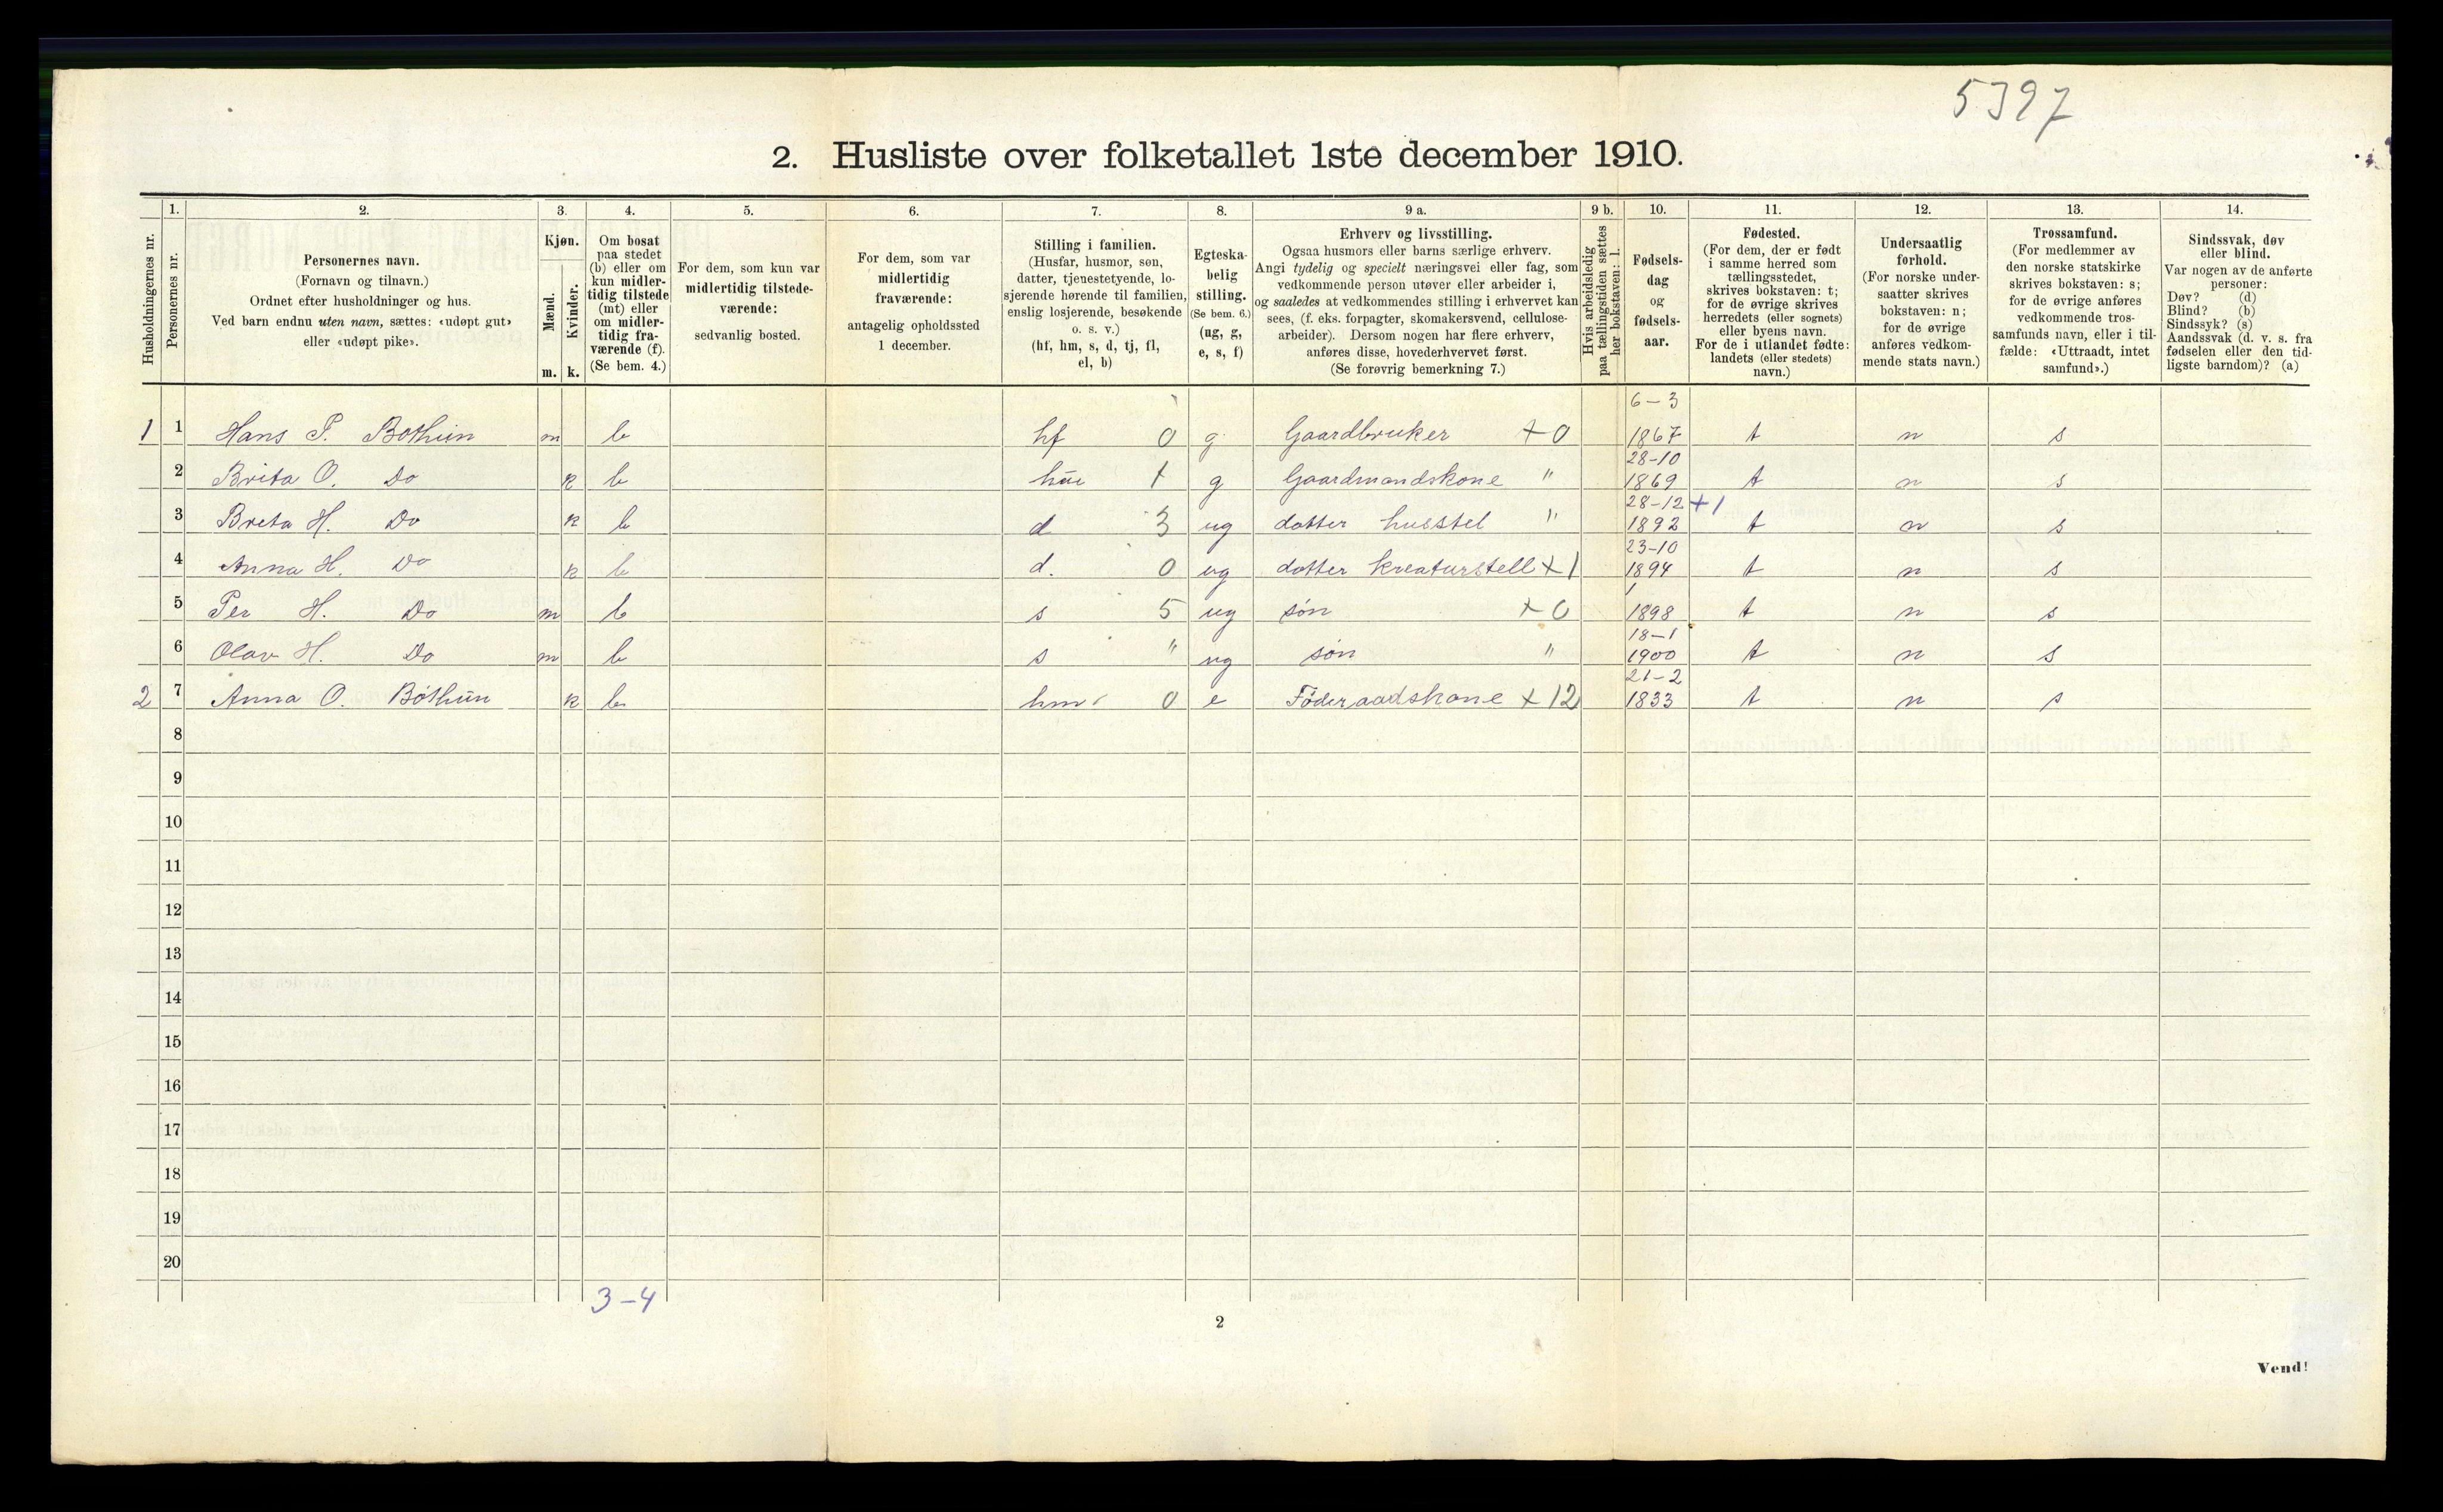 5397
2. Husliste over folketallet 1ste december 1910.
Husholdningernes nr.
1.
Personernes nr.
2.
Personernes navn.
(Fornavn og tilnavn.)
Ordnet efter husholdninger og hus.
Ved barn endnu uten navn, sættes: «udøpt gut»
eller «udøpt pike».
3.
Kjøn.
Mænd.
Kvinder.
m. k.
4.
Om bosat
paa stedet
(b) eller om
kun midler-
tidig tilstede
(mt) eller
om midler-
tidig fra-
værende (f).
(Se bem. 4.)
5.
For dem, som kun var
midlertidig tilstede-
værende:
sedvanlig bosted.
6.
For dem, som var
midlertidig
fraværende:
antagelig opholdssted
1 december.
7.
Stilling i familien.
(Husfar, husmor, søn,
datter, tjenestetyende, lo-
sjerende hørende til familien,
enslig losjerende, besøkende
o. s. v.)
(hf, hm, s, d, tj, fl,
el, b)
8.
Egteska-
belig
stilling.
(Se bem. 6.)
(ug, g,
e, s, f)
9 a.
Erhverv og livsstilling.
Ogsaa husmors eller barns særlige erhverv.
Angi tydelig og specielt næringsvei eller fag, som
vedkommende person utøver eller arbeider i,
og saaledes at vedkommendes stilling i erhvervet kan
sees, (f. eks. forpagter, skomakersvend, cellulose-
arbeider). Dersom nogen har flere erhverv,
anføres disse, hovederhvervet først.
(Se forøvrig bemerkning 7.)
9 b.
Hvis arbeidsledig
paa tællingstiden sættes
her bokstaven: l.
10.
Fødsels-
dag
og
fødsels-
aar.
11.
Fødested.
(For dem, der er født
i samme herred som
tællingsstedet,
skrives bokstaven: t;
for de øvrige skrives
herredets (eller sognets)
eller byens navn.
For de i utlandet fødte:
landets (eller stedets)
navn.)
12.
Undersaatlig
forhold.
(For norske under-
saatter skrives
bokstaven: n;
for de øvrige
anføres vedkom-
mende stats navn.)
13.
Trossamfund.
(For medlemmer av
den norske statskirke
skrives bokstaven: s;
for de øvrige anføres
vedkommende tros-
samfunds navn, eller i til-
fælde: «Uttraadt, intet
samfund».)
14.
Sindssvak, døv
eller blind.
Var nogen av de anførte
personer:
Døv? (d)
Blind? (b)
Sindssyk? (s)
Aandssvak (d. v. s. fra
fødselen eller den tid-
ligste barndom)? (a)
6-3
1 1 Hans P. Bothun m b hf 0 g Gaardbruker + 0 1867 t n s
28-10
2 Brita O. Do k b 1 g Gaardmandskone " 1869 t n s
28-12 +1
3 Breta H. Do k b d 3 ug datter husstel " 1892 t n s
23-10
4 Anna H. Do k b d. 0 ug datter kreaturstell + 1 1894 t n s
5 Per H. Do m b s 5 ug søn + 0 1898 t n s
18-1
6 Olav H. Do m b s " ug søn " 1900 t n s
21-2
2 7 Anna O. Bothun k b hm 0 e Føderaadskone + 12 1833 t n s
8
9
10
11
12
13
14
15
16
17
18
19
20
3-4
2
Vend!